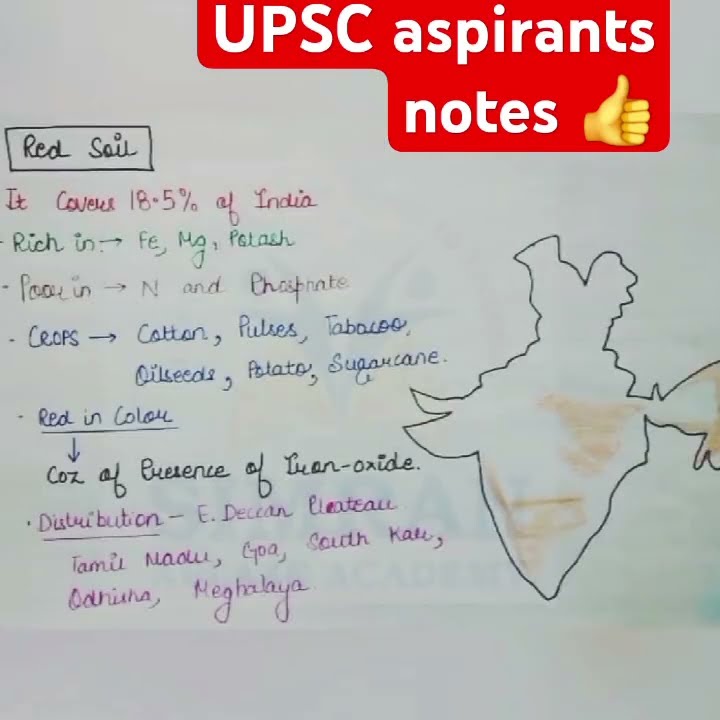 UPSC aspirants
notes 👍
Red Soil
It Covers 18.5% of India
- Rich in :→ Fe, Mg, Potash
- Poor in → N and Phosphate
- CROPS → Cotton, Pulses, Tabacoo,
Oilseeds, Potato, Sugarcane.
- Red in Colour
↓
Coz of Presence of Iron-oxide.
· Distribution - E. Deccan Plateau
Tamil Nadu, Goa, South Kar,
Odhisha, Meghalaya
ACADEMY